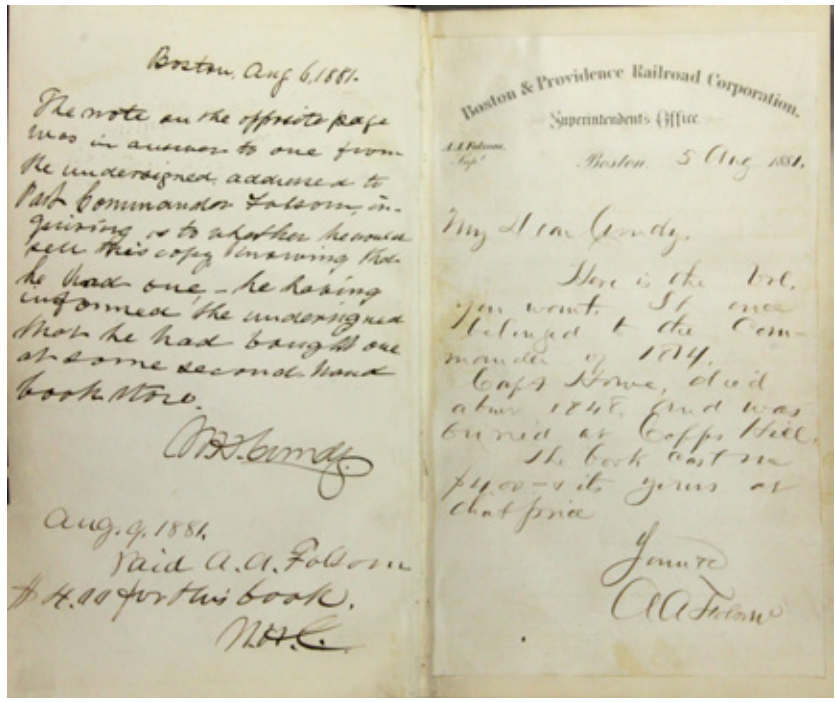 Boston, Aug 6, 1881.
The note on the opposite page
was in answer to one from
the undersigned, addressed to
Past Commander Folsom, in-
quiring as to whether he would
sell this copy knowing that
he had one – he having
informed the undersigned
that he had bought one
at some second-hand
book store.
Aug. 9. 1881.
Paid A. A. Folsom
$4.00 for this book.
Boston & Providence Railroad Corporation.
Superintendent's Office
A.A. Folsom.
Supt
Boston. 5 Aug 1881.
My Dear
Here is the Vol.
you want. It once
belonged to the Com-
mander of 1814.
Capt Howe, died
about 1848. and was
buried at Copps Hill.
The book cost me
$4.00 – & its yours at
that price
Yours &c
A A Folsom